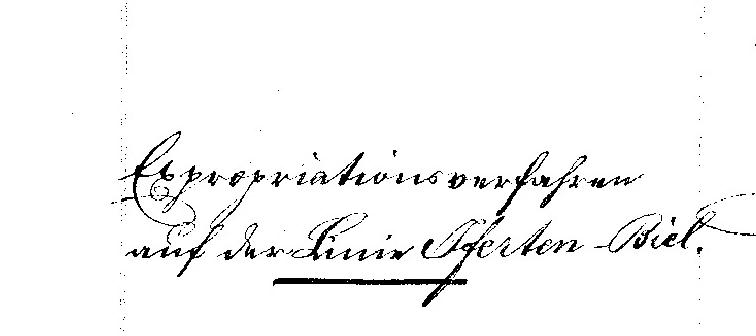 Expropriationsverfahren
auf der Linie Iferten-Biel.